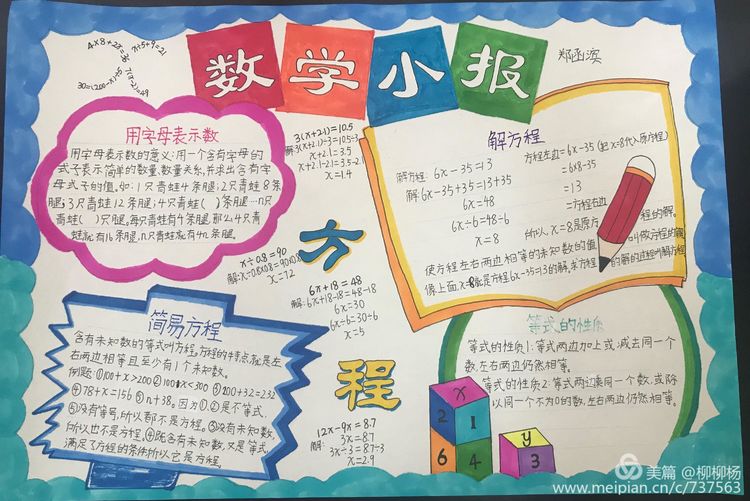 数学小报
郑函滨
4x8+2x=36
x÷5+9=21
30=(200-x)÷5
7(x-2)=49
用字母表示数
用字母表示数的意义:用一个含有字母的
式子表示简单的数量,数量关系,并求出含有字
母式子的值。如:1只青蛙4条腿;2只青蛙8条
腿;3只青蛙12条腿;4只青蛙( )条腿…n只
青蛙( )只腿。每只青蛙有4条腿那么4只青
蛙就有16条腿,n只青蛙就有4n条腿。
3(x+2.1)=10.5
解:3(x+2.1)÷3=10.5÷3
x+2.1=3.5
x+2.1-2.1=3.5-2.1
x=1.4
方
x÷0.8=90
解:x÷0.8x0.8=90x0.8
x=72
6x+18=48
解:6x+18-18=48-18
6x=30
6x÷6=30÷6
x=5
程
12x-9x=8.7
解:3x=8.7
3x÷3=8.7÷3
x=2.9
解方程
解方程:6x-35=13
解:6x-35+35=13+35
6x=48
6x÷6=48÷6
x=8
方程左边=6x-35(把x=8代入原方程)
=6x8-35
=13
=方程右边
所以,x=8是原方程的解。
使方程左右两边相等的未知数的值,叫做方程的解
像上面,x=8就是方程6x-35=13的解,求方程的解的过程叫解方程
简易方程
含有未知数的等式叫方程。方程的特点就是左
右两边相等且至少有1个未知数。
例题:①100+x>200②100+x<300③200+32=232
④78+x=156⑤n+38。因为①.②是不等式,
⑤没有等号,所以都不是方程。③没有未知数,
所以也不是方程。④既含有未知数,又是等式,
满足了方程的条件所以它是方程。
等式的性质
等式的性质1:等式两边加上或减去同一个
数,左右两边仍然相等。
等式的性质2:等式两边乘同一个数,或除
以同一个不为0的数,左右两边仍然相等。
x
2 1
6 4
y
3
美篇 @柳柳杨
www.meipian.cn/c/737563